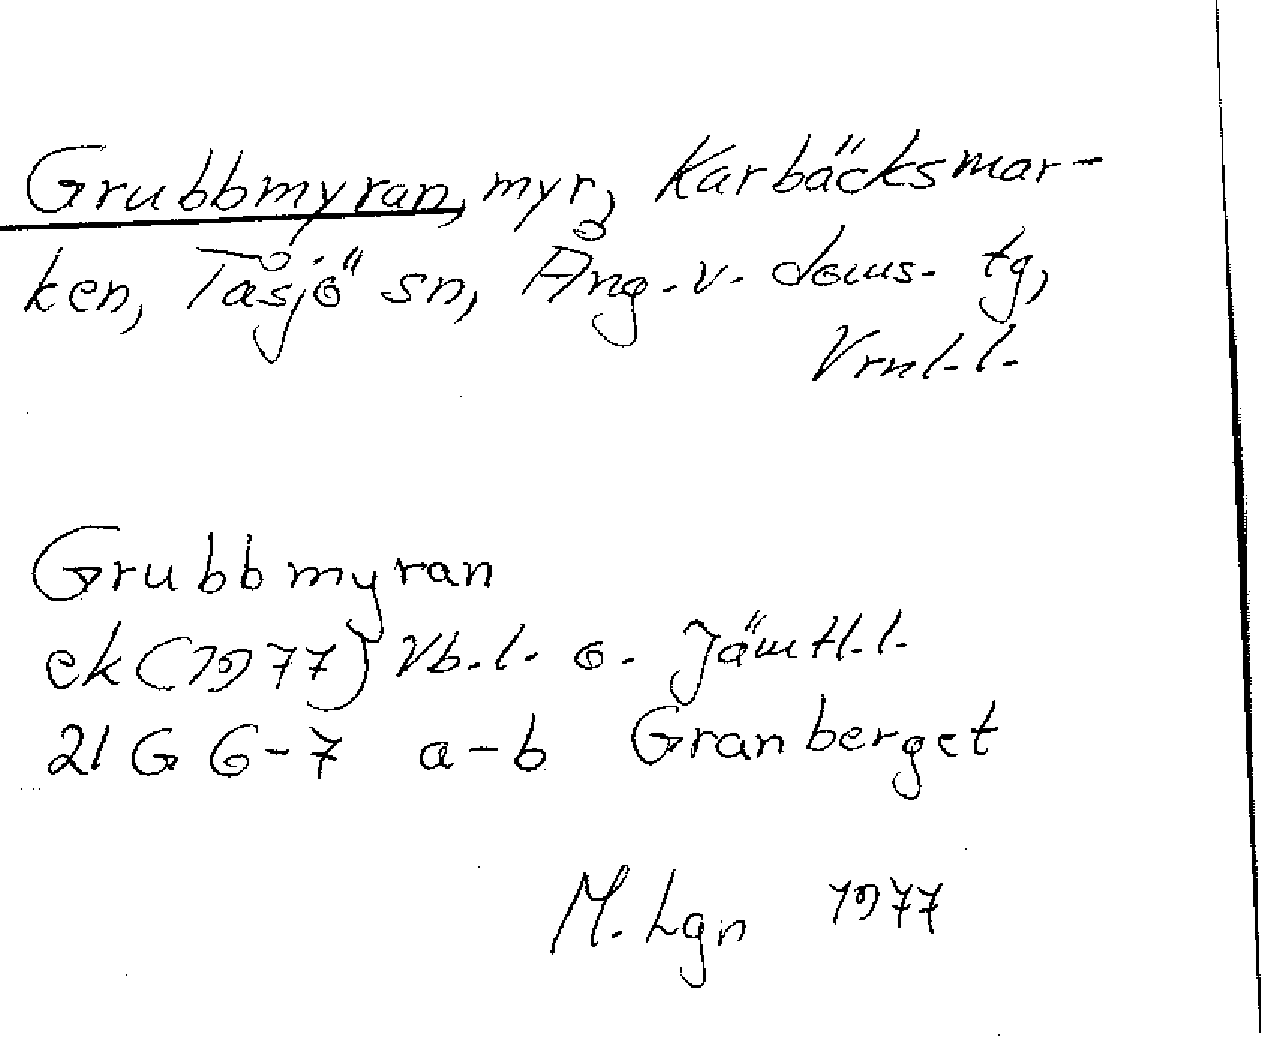 Grubbmyran, myr, Karbäcksmar-
ken, Tåsjö sn, Ång. v. doms. tg,
Vrnl. l.
Grubbmyran
ek (1977) Vb. l. o. Jämtl. l.
21 G 6-7 a-b Granberget
M. Lgn 1977